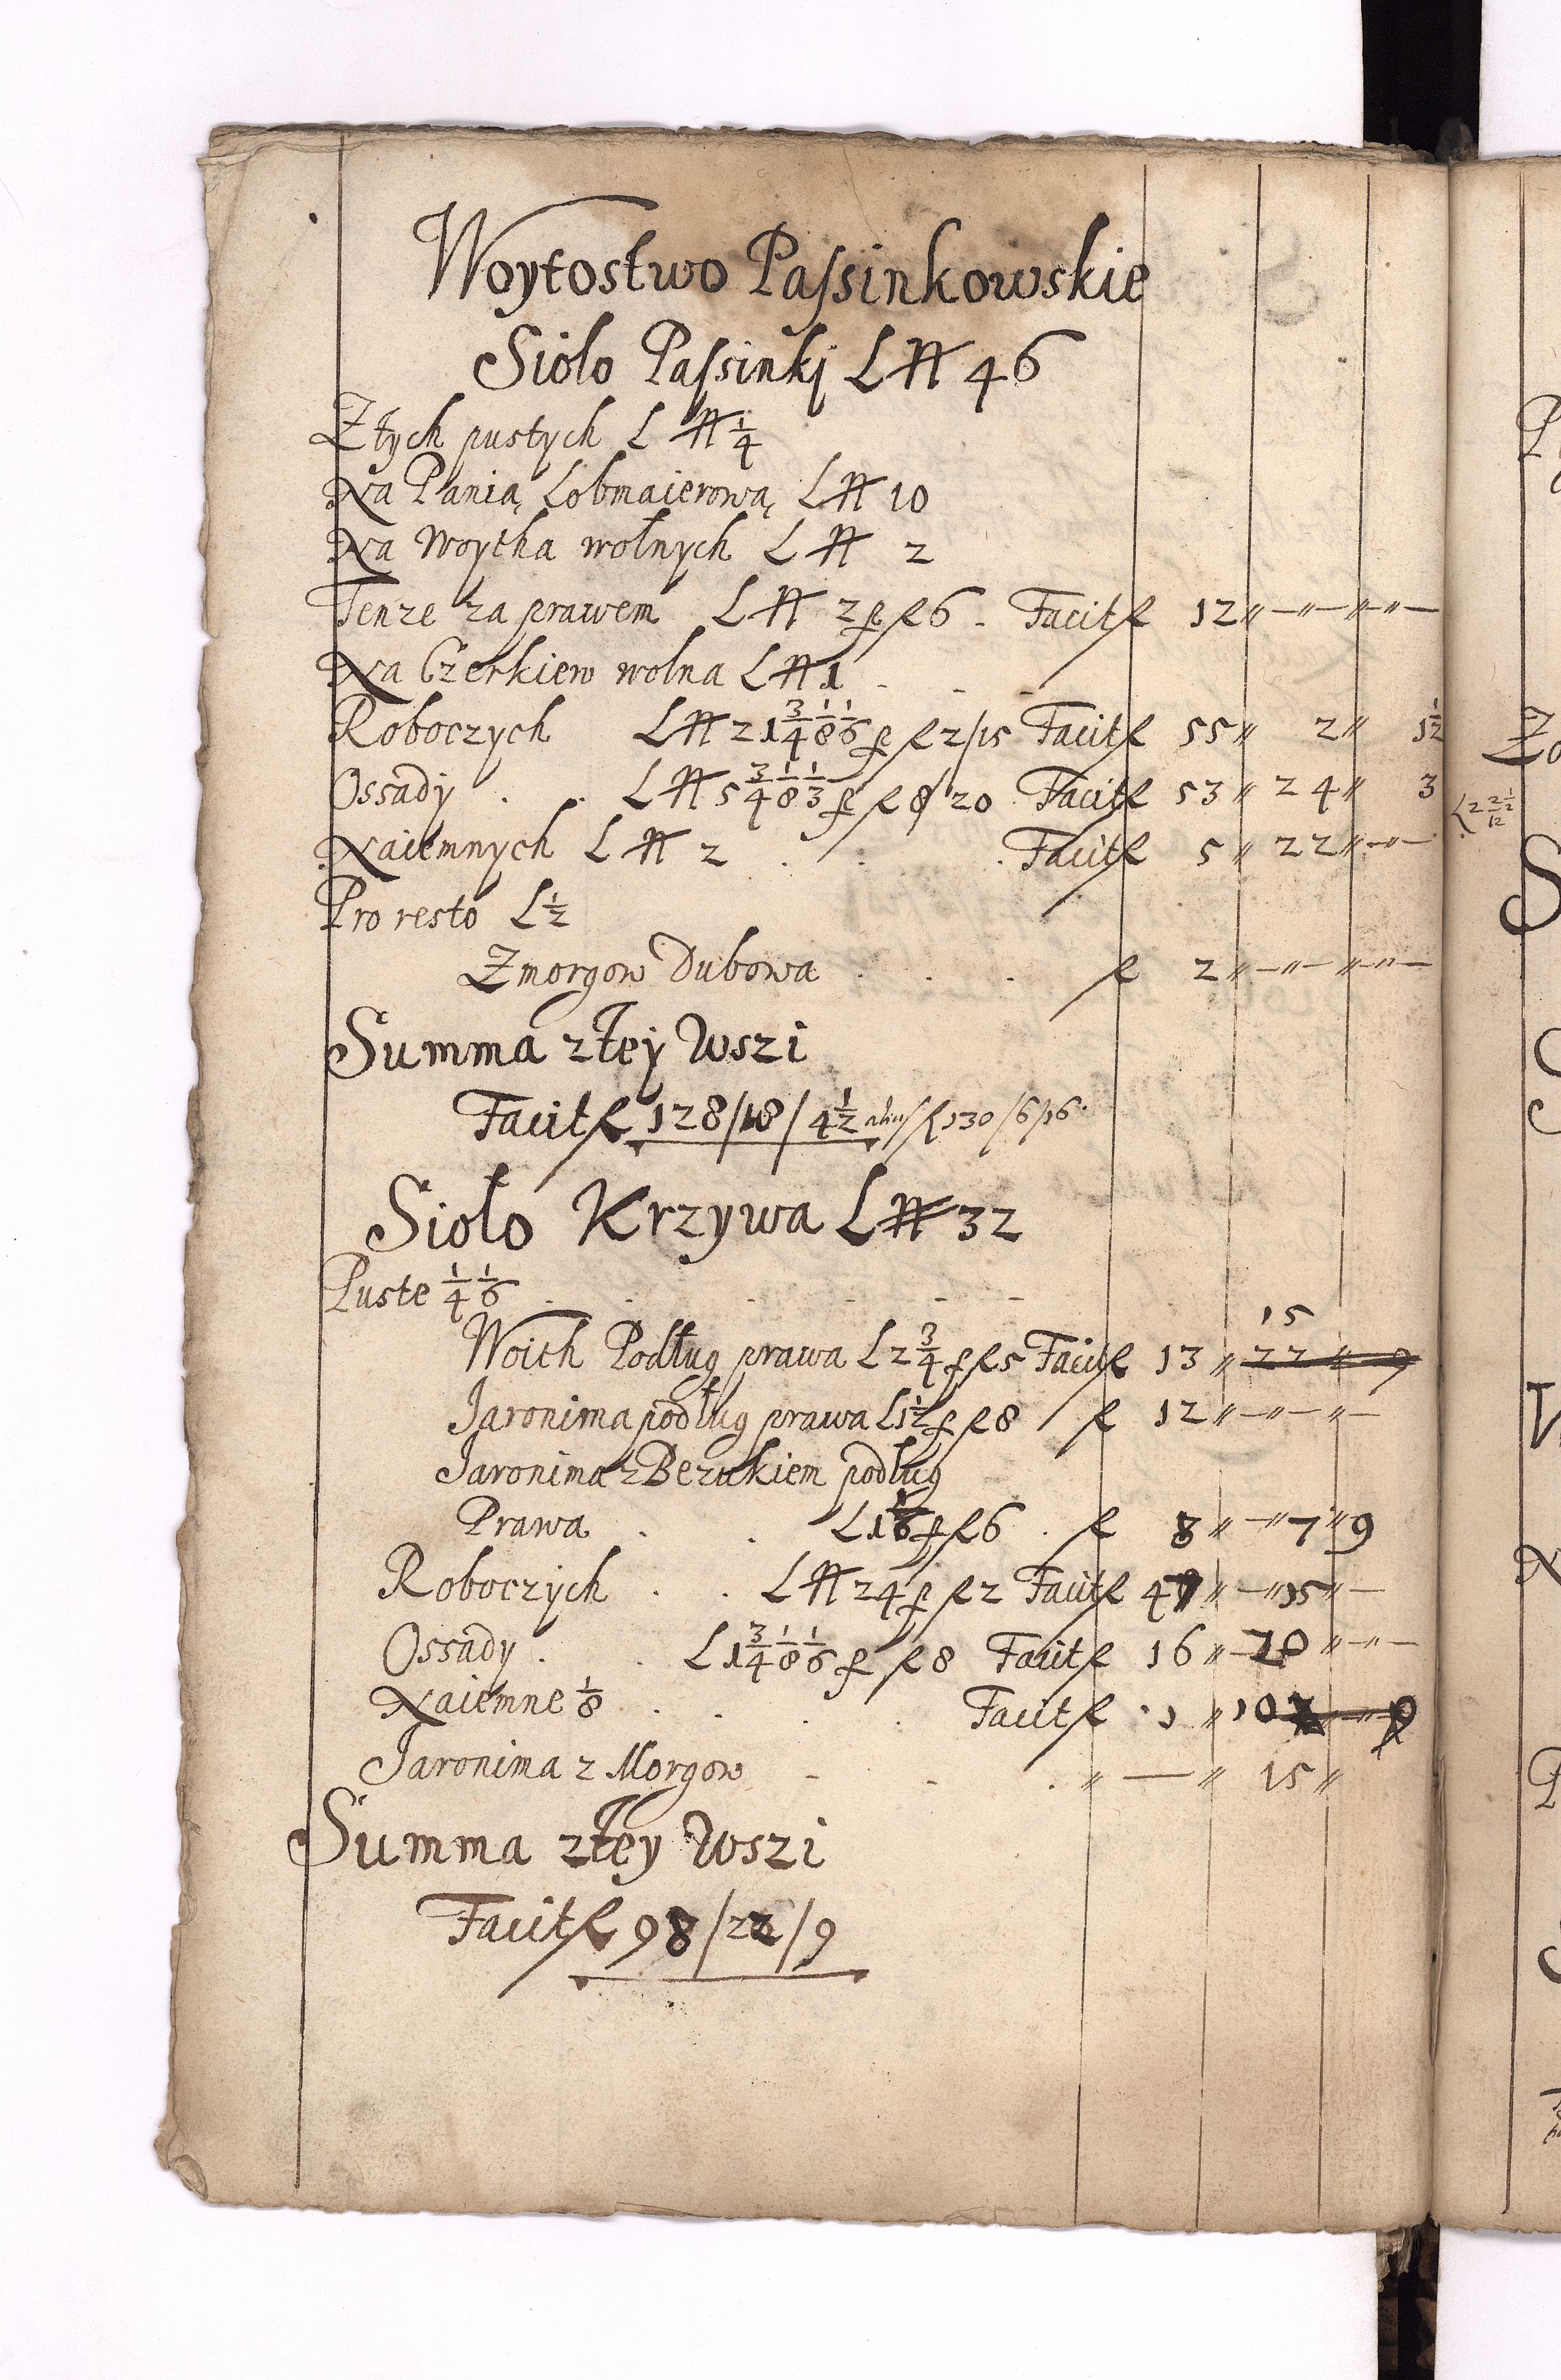 Woytostwo Paſsinkowskie
Sioło Paſsinkj L N 46
Z tych pustych L N 1/4
Na Panią Lobmaierową L N 10
Na Woytha wolnych L N 2
Tenze za prawem L N 2 p fl 6 . Facit fl 12 〃 — 〃 — 〃 — 〃 —
Na Czerkiew wolna L N 1
Roboczych L N 21 3/4 1/8 1/6 p fl 2/15 Facit fl 55 〃 2 〃 1 1/2
Ossady . . L N 5 3/4 1/8 1/3 p fl 8/20 Facit fl 53 〃 24 〃 3
Naiemnych L N 2 . . . Facit fl 5 〃 22 〃 — 〃 —
Pro resto L 1/2
Z morgow Dubowa . . . fl 2 〃 — 〃 — 〃 — 〃 —
Summa z tey Wszi
Facit fl 128/18/4 1/2 alias fl 130/6/16.
Sioło Krzywa L N 32
Puste 1/4 1/6
15
Woith Podług prawa L 2 3/4 p fl 5 Facit fl 13 〃 22 〃 9
Jaronima podług prawa L 1 1/2 p fl 8 fl 12 〃 — 〃 — 〃 —
Jaronima z Bezukiem podług
Prawa . . L 1 1/6 p fl 6 . fl 8 〃 — 〃 7 〃 9
Roboczych . . L N 24 p fl 2 Facit fl 47 〃 — 〃 15 〃 —
Ossady . . L 1 3/4 1/8 1/6 p fl 8 Facit fl 16 〃 20 〃 — 〃 —
Naiemne 1/8 . . . . Facit fl 1 〃 10
Jaronima z Morgow . . . 〃 — 〃 15 〃
Summa z tey Wszi
Facit fl 98/22/9